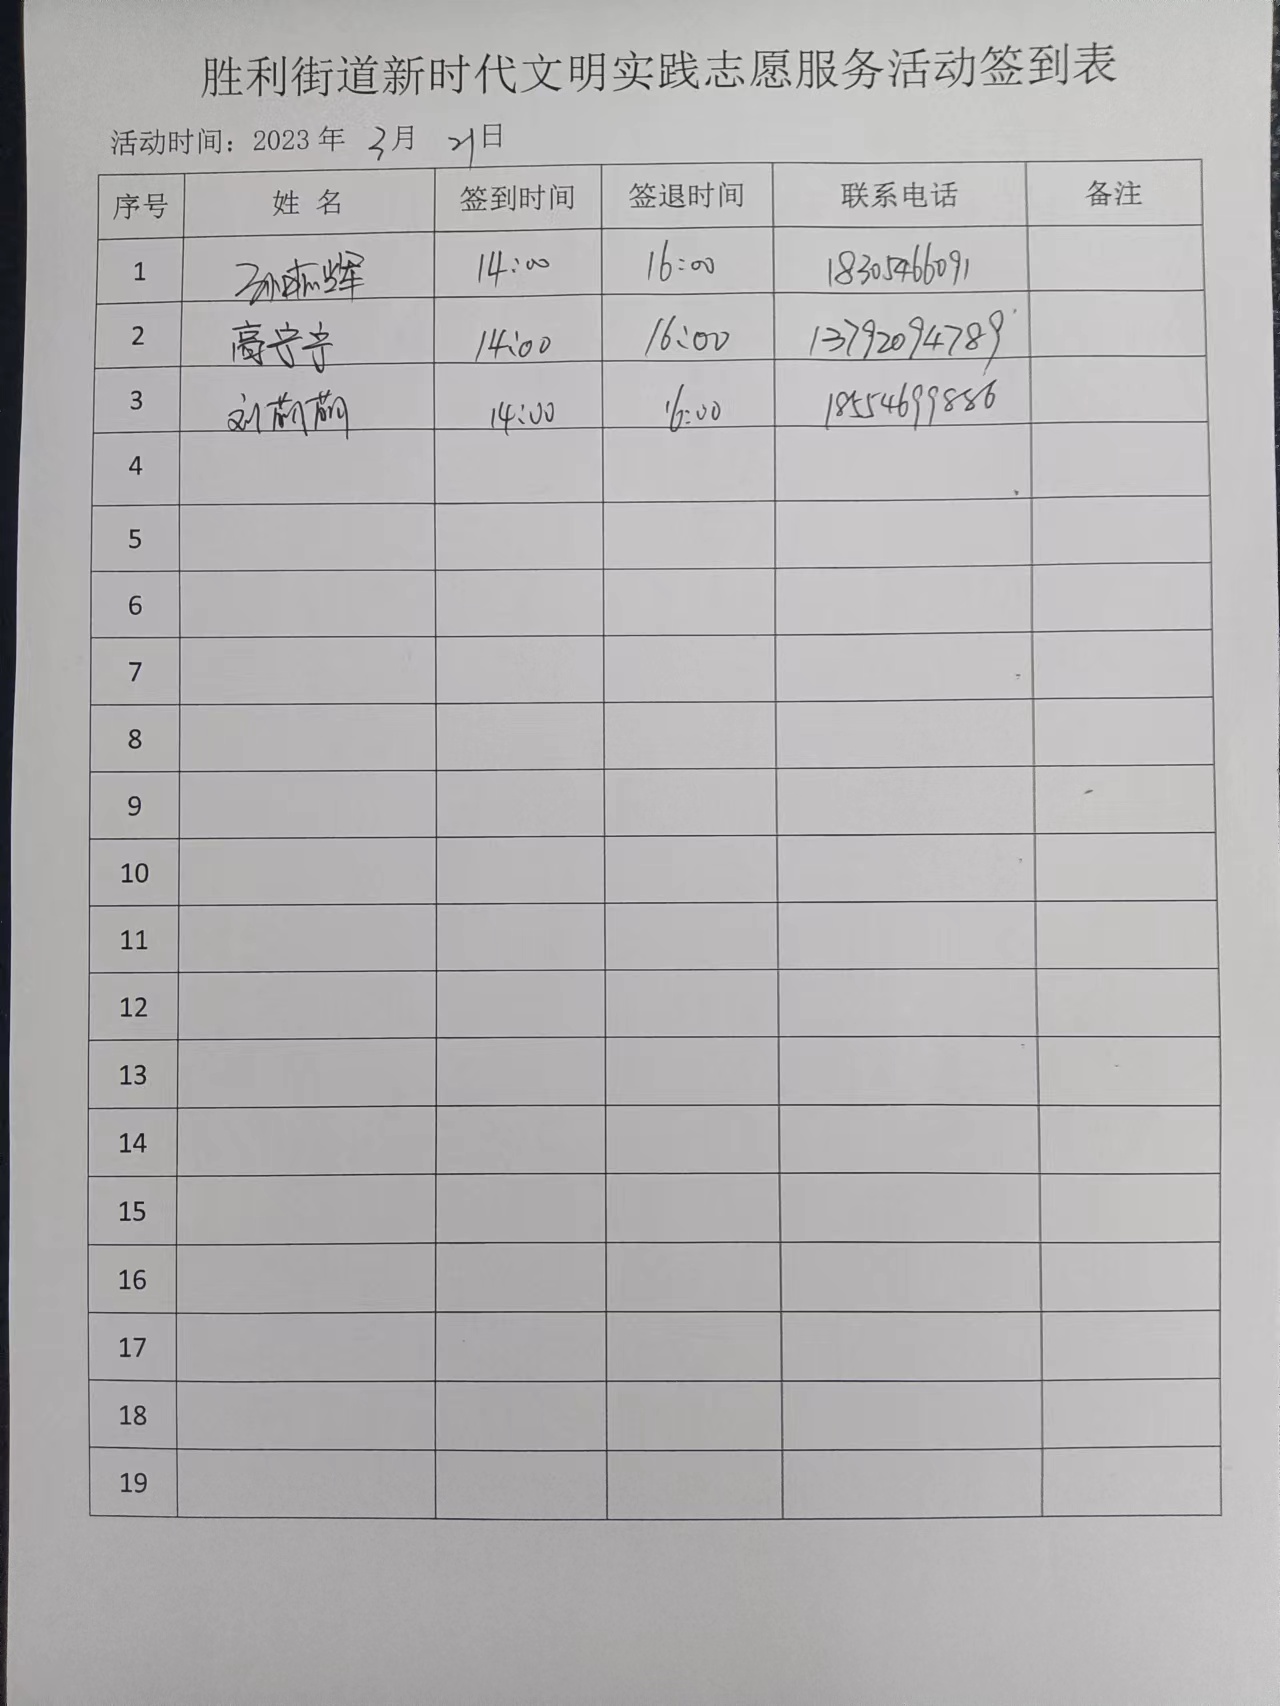 胜利街道新时代文明实践志愿服务活动签到表
活动时间：2023 年 3月 21日
序号 姓 名 签到时间 签退时间 联系电话 备注
1 14:00 16:00 18305466091
2 高宁宁 14:00 16:00 13792094789
3 刘萌萌 14:00 16:00 18554699886
4
5
6
7
8
9
10
11
12
13
14
15
16
17
18
19